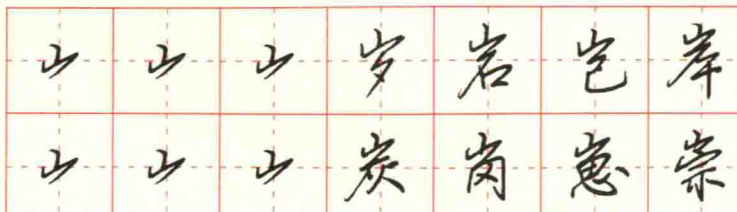 山山山岁岩岂岸
山山山炭岗崽崇